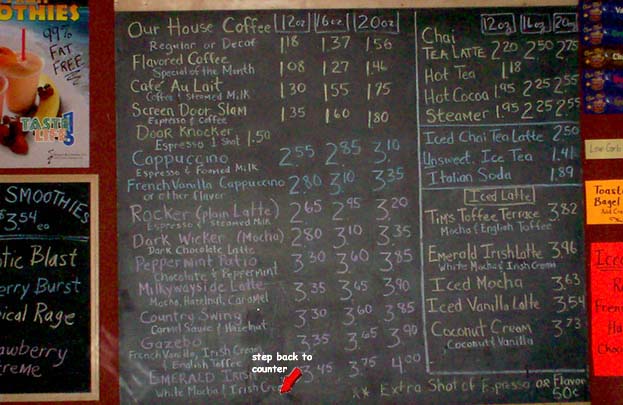 OTHIES
99%
FAT
FREE
TASTE
LIFE
SMOOTHIES
$3.54 ea
tic Blast
erry Burst
ical Rage
awberry
treme
Our House Coffee 12oz 16oz 20oz
Regular or Decaf 1.18 1.37 1.56
Flavored Coffee
Special of the Month 1.08 1.27 1.46
Cafe Au Lait 1.30 1.55 1.75
Coffee & Steamed Milk
Screen Door Slam 1.35 1.60 1.80
Espresso & Coffee
Door Knocker
Espresso 1 Shot 1.50
Cappuccino 2.55 2.85 3.10
Espresso & Foamed Milk
French Vanilla Cappuccino 2.80 3.10 3.35
or other flavor
Rocker (plain Latte) 2.65 2.95 3.20
Espresso & Steamed Milk
Dark Wicker (Mocha) 2.80 3.10 3.35
Dark Chocolate Latte
Peppermint Patio 3.30 3.60 3.85
Chocolate & Peppermint
Milkywayside Latte 3.35 3.65 3.90
Mocha, Hazelnut, Caramel
Country Swing 3.30 3.60 3.85
Caramel Sauce & Hazelnut
Gazebo 3.35 3.65 3.90
French Vanilla, Irish Cream
& English Toffee
EMERALD IRISH 3.45 3.75 4.00
White Mocha & Irish Cream
step back to
counter
12oz 16oz 20oz
Chai
TEA LATTE 2.20 2.50 2.75
Hot Tea 1.18
Hot Cocoa 1.95 2.25 2.55
Steamer 1.95 2.25 2.55
Iced Chai Tea Latte 2.50
Unsweet. Ice Tea 1.41
Italian Soda 1.89
Iced Latte
Tims Toffee Terrace 3.82
Mocha & English Toffee
Emerald Irish Latte 3.96
White Mocha & Irish Cream
Iced Mocha 3.63
Iced Vanilla Latte 3.54
Coconut Cream 3.73
Coconut & Vanilla
** Extra Shot of Espresso or Flavor
50¢
Low Carb
Toast
Bagel
Iced